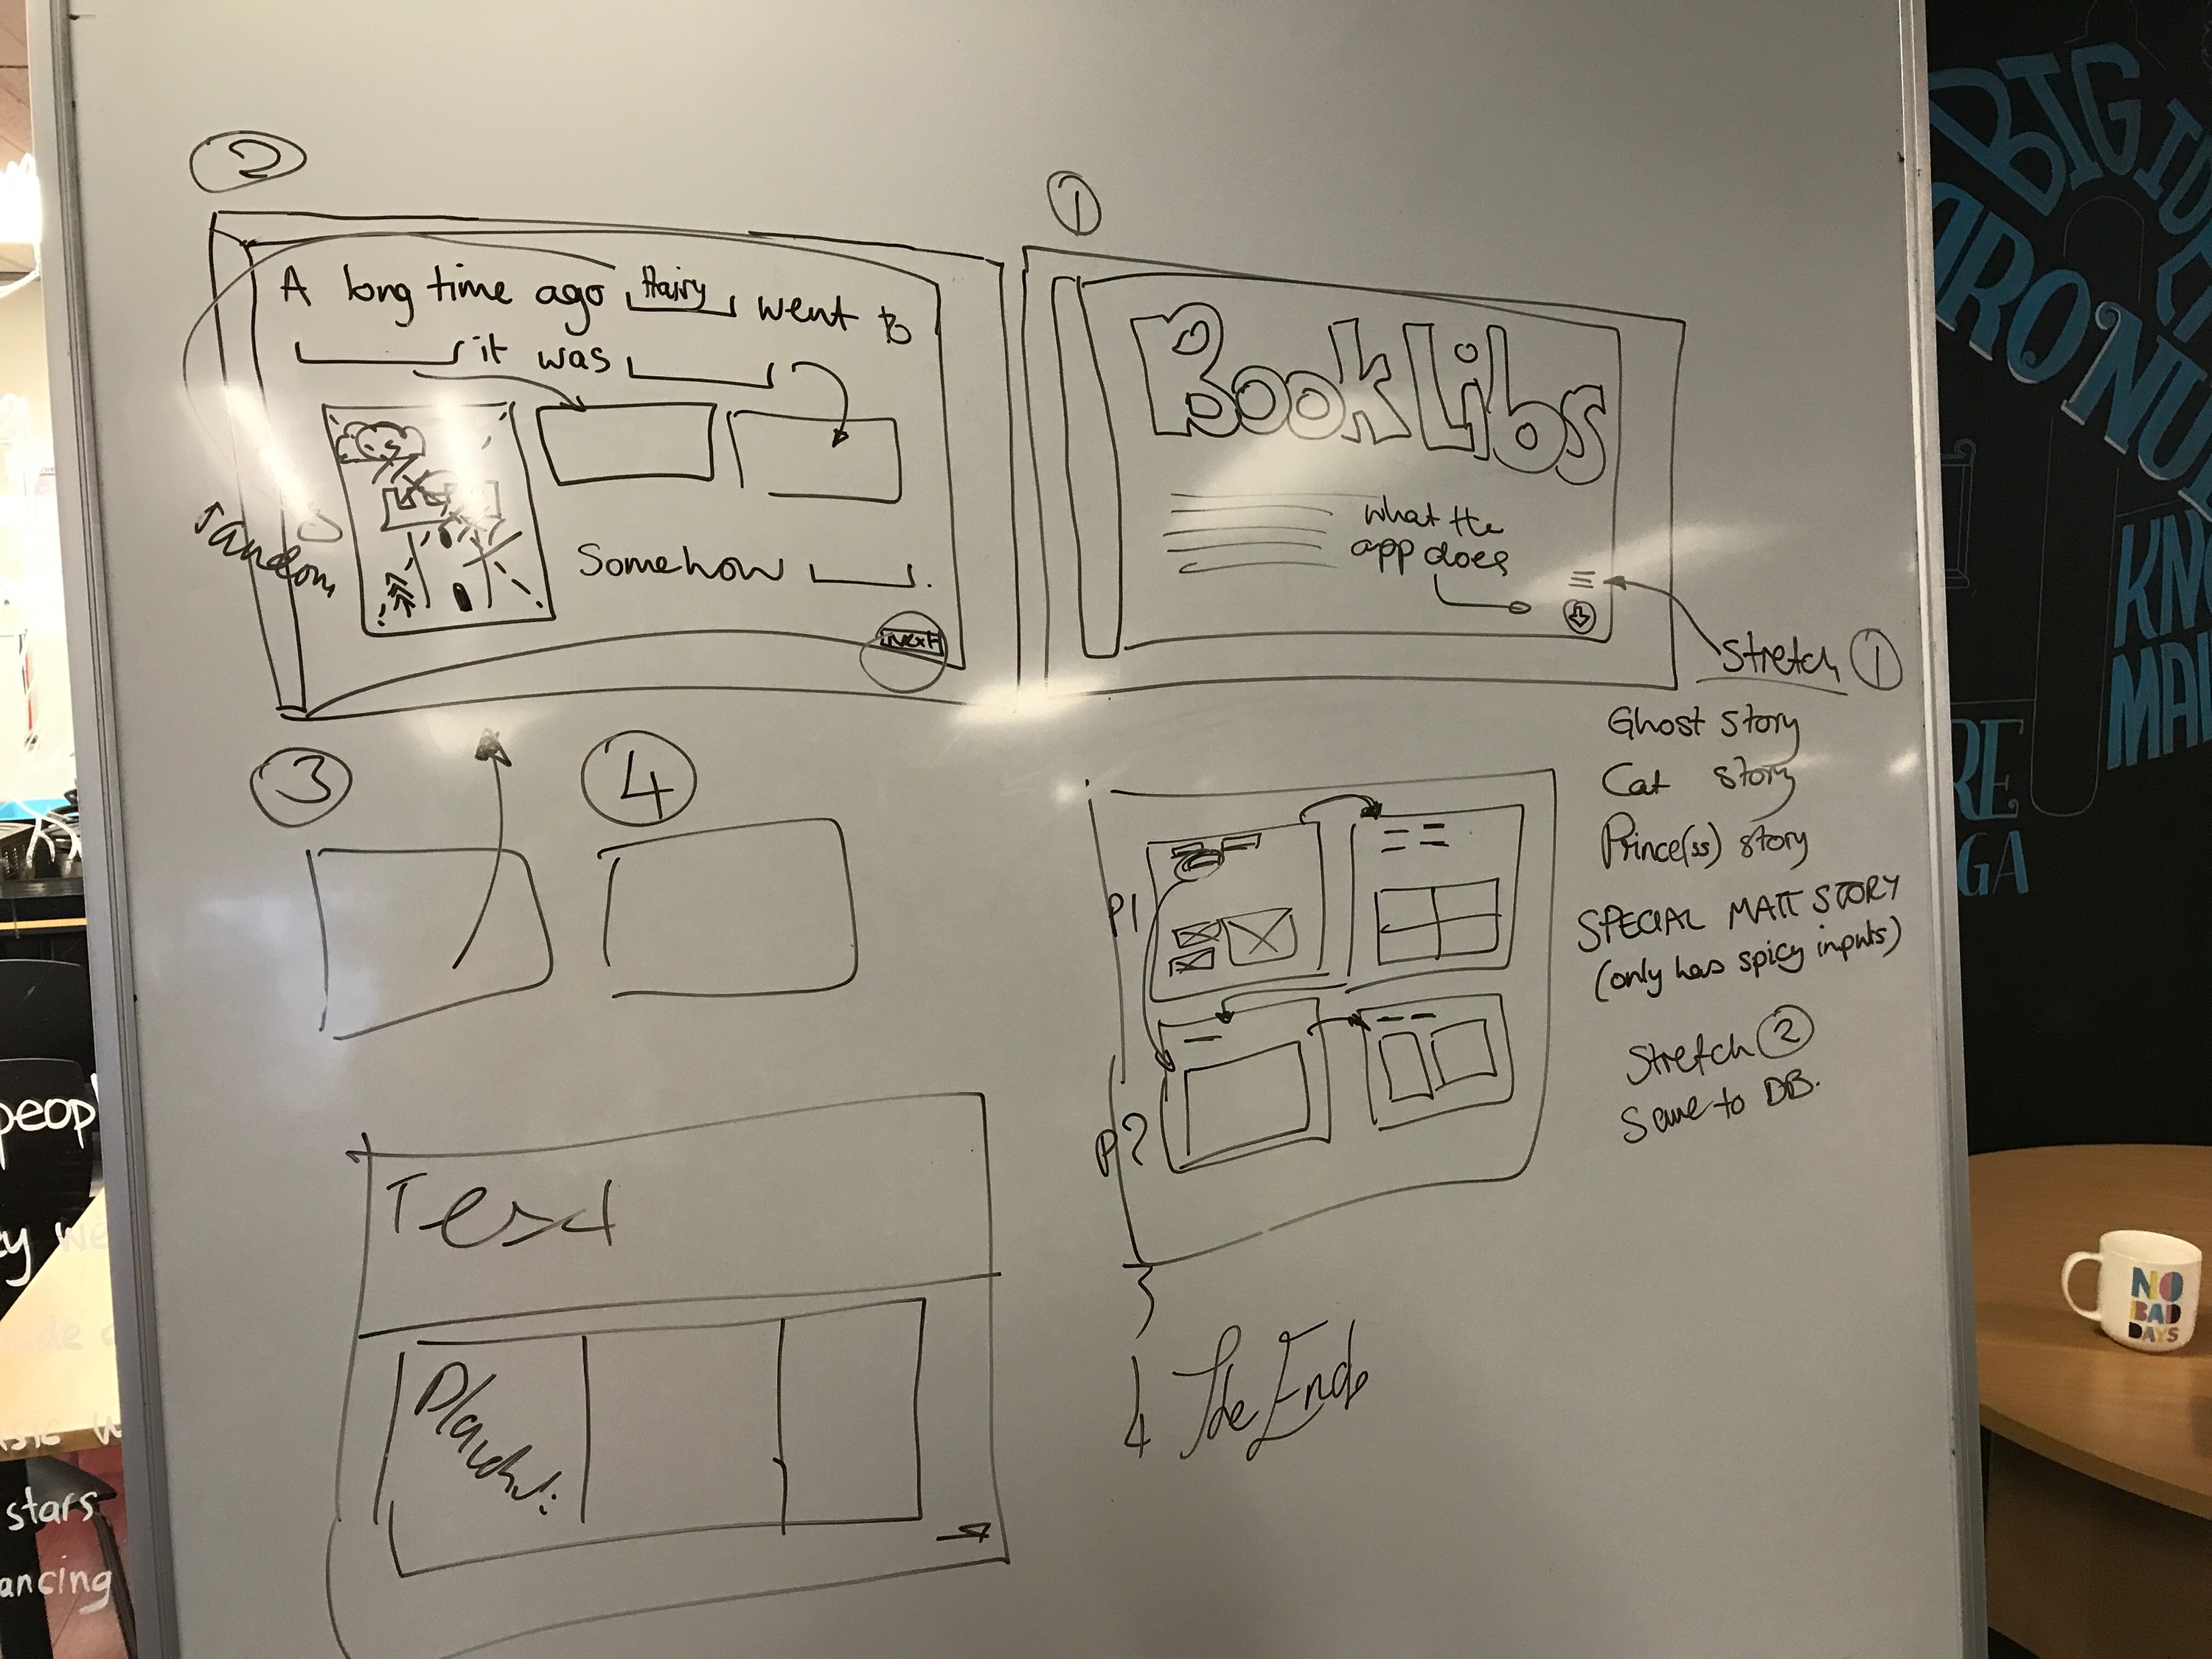 2
A long time ago Harry went to
it was
random
Somehow
Next
1
Book Libs
what the
app does
Stretch 1
Ghost story
Cat story
Prince(ss) story
SPECIAL MATT STORY
(only has spicy inputs)
Stretch 2
Save to DB.
3
4
P1
P2
3
4 The End
Text
BIG
KN
MA
RE
GA
peop
stars
ancing
NO
BAD
DAYS